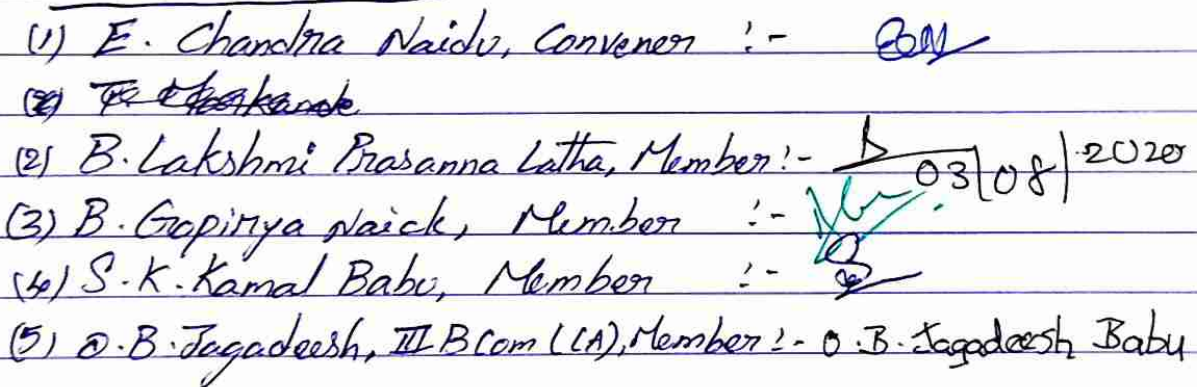 (1) E. Chandra Naidu, Convener :-
(2) B. Lakshmi Prasanna Latha, Member :- 03/08/2020
(3) B. Gopinya Naick, Member :-
(4) S.K. Kamal Babu, Member :-
(5) O.B. Jagadeesh, III B Com (CA), Member :- O.B. Jagadeesh Babu